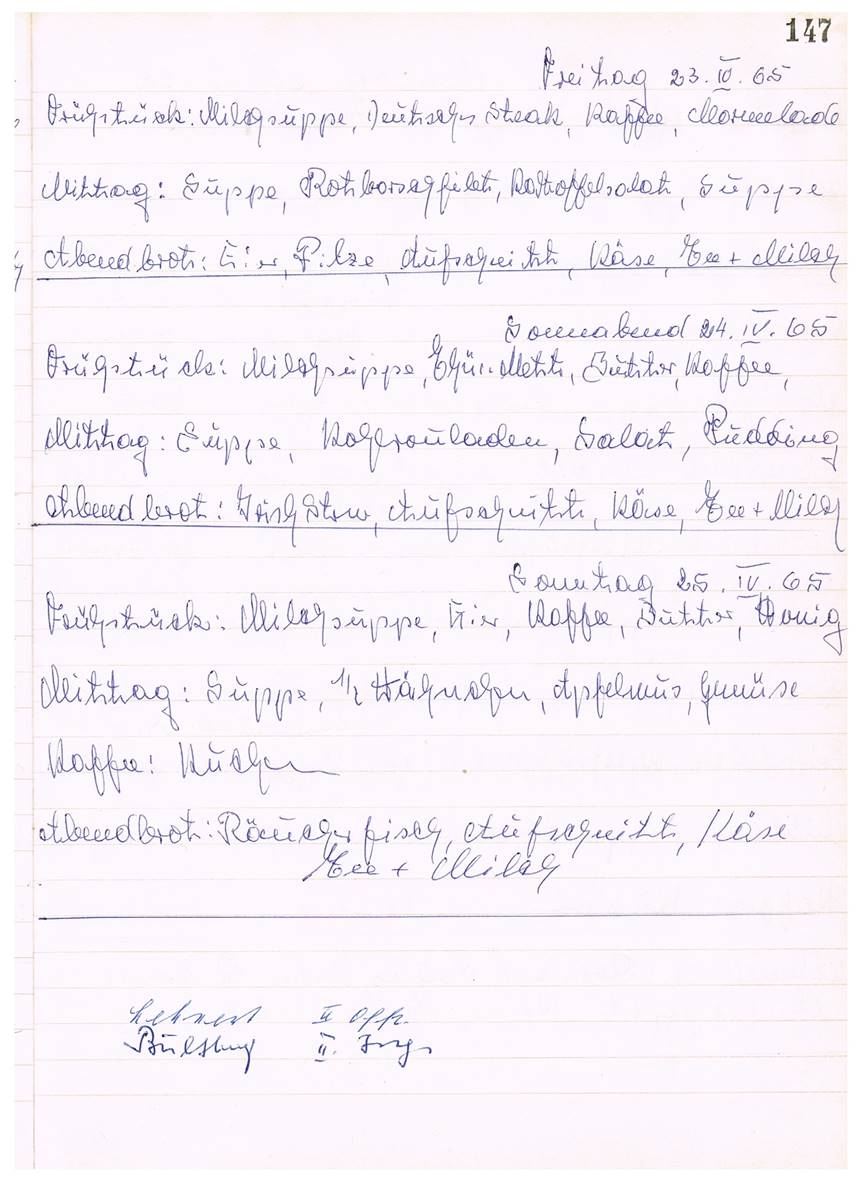 147
Freitag 23.IV.65
Frühstück: Milchsuppe, Deutsches Steak, Kaffee, Marmelade
Mittag: Suppe, Rotbarschfilet, Kartoffelsalat, Suppe
Abendbrot: Eier, Pilze, Aufschnitt, Käse, Tee + Milch
Sonnabend 24.IV.65
Frühstück: Milchsuppe, Mett, Butter, Kaffee,
Mittag: Suppe, Kohlrouladen, Salat, Pudding
Abendbrot: Irish Stew, Aufschnitt, Käse, Tee + Milch
Sonntag 25.IV.65
Frühstück: Milchsuppe, Eier, Kaffee, Butter, Honig
Mittag: Suppe, 1/2 Hähnchen, Apfelmus, Gemüse
Kaffee: Kuchen
Abendbrot: Räucherfisch, Aufschnitt, Käse
Tee + Milch
Lehnert II Offz.
II. Ing.